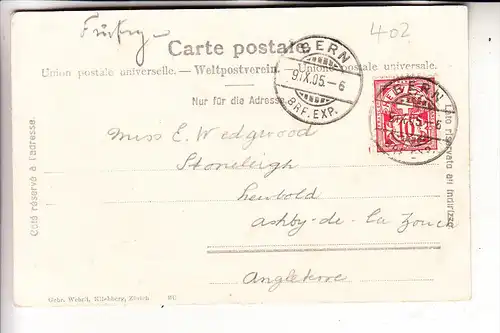 402
Carte postale.
Union postale universelle. — Weltpostverein. — Unione postale universale.
Nur für die Adresse.
BERN
9.IX.05. - 6
BRF. EXP.
BERN
Côté réservé à l'adresse.
Lato riservato all'indirizzo.
Miss E. Wedgwood
Stoneleigh
Ashby-de-la Zouch
Angleterre
Gebr. Wehrli, Kilchberg, Zürich